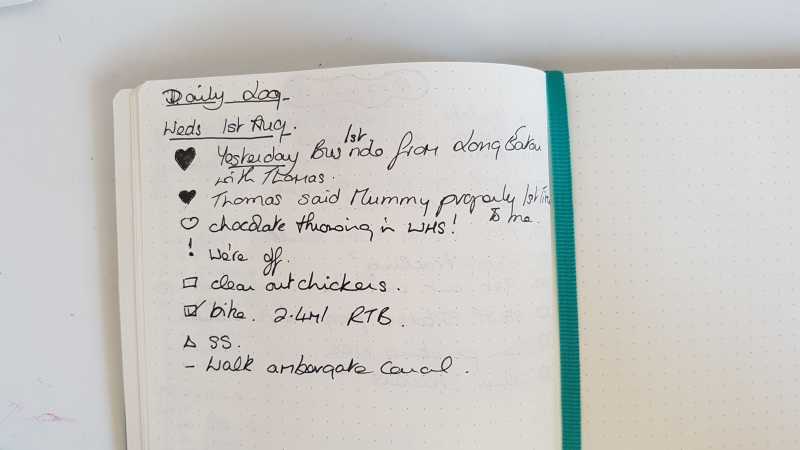 Daily Log
Weds 1st Aug.
Yesterday 1st Bus ride from Long Eaton
with Thomas.
Thomas said Mummy properly 1st Time
To me.
chocolate throwing in WHS!
We're off.
clean out chickens.
bike. 2.4Ml RTB.
SS.
- Walk ambergate Canal.